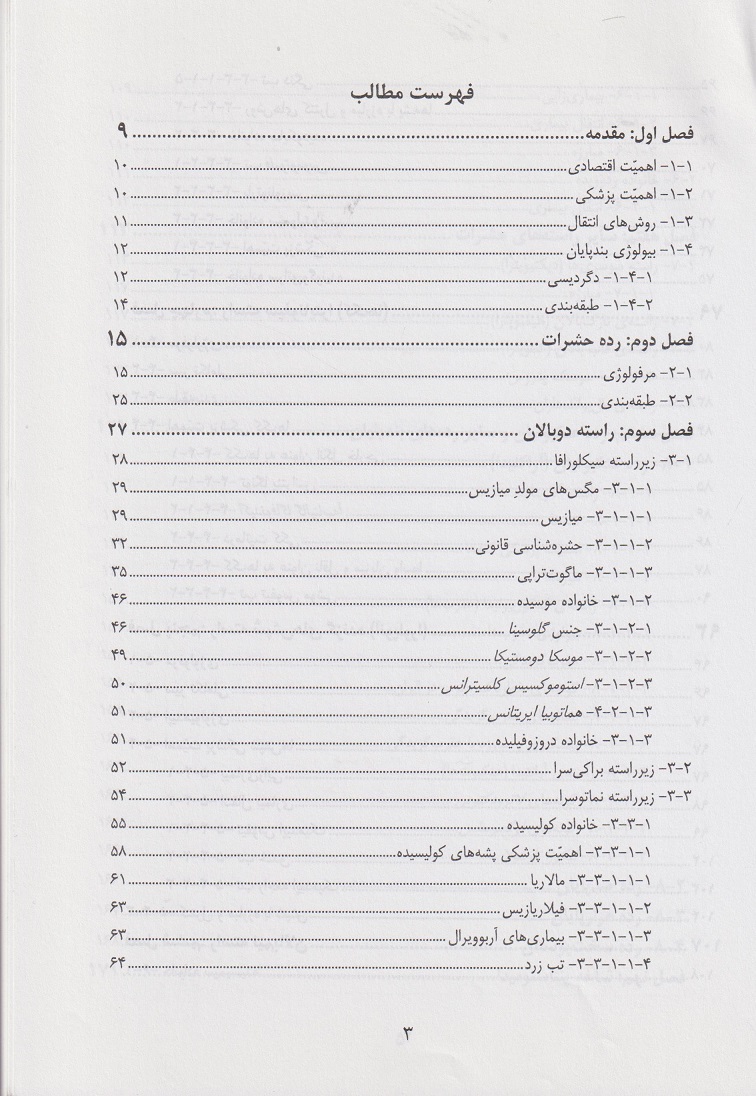 فهرست مطالب
فصل اول: مقدمه ........ ۹
۱-۱- اهمیّت اقتصادی ........ ۱۰
۱-۲- اهمیّت پزشکی ........ ۱۰
۱-۳- روش‌های انتقال ........ ۱۱
۱-۴- بیولوژی بندپایان ........ ۱۲
۱-۴-۱- دگردیسی ........ ۱۲
۱-۴-۲- طبقه‌بندی ........ ۱۴
فصل دوم: رده حشرات ........ ۱۵
۲-۱- مرفولوژی ........ ۱۵
۲-۲- طبقه‌بندی ........ ۲۵
فصل سوم: راسته دوبالان ........ ۲۷
۳-۱- زیرراسته سیکلورافا ........ ۲۸
۳-۱-۱- مگس‌های مولدِ میازیس ........ ۲۹
۳-۱-۱-۱- میازیس ........ ۲۹
۳-۱-۱-۲- حشره‌شناسی قانونی ........ ۳۲
۳-۱-۱-۳- ماگوت‌تراپی ........ ۳۵
۳-۱-۲- خانواده موسیده ........ ۴۶
۳-۱-۲-۱- جنس گلوسینا ........ ۴۶
۳-۱-۲-۲- موسکا دومستیکا ........ ۴۹
۳-۱-۲-۳- استوموکسیس کلسیترانس ........ ۵۰
۳-۱-۲-۴- هماتوبیا ایریتانس ........ ۵۱
۳-۱-۳- خانواده دروزوفیلیده ........ ۵۱
۳-۲- زیرراسته براکی‌سرا ........ ۵۲
۳-۳- زیرراسته نماتوسرا ........ ۵۴
۳-۳-۱- خانواده کولیسیده ........ ۵۵
۳-۳-۱-۱- اهمیّت پزشکی پشه‌های کولیسیده ........ ۵۸
۳-۳-۱-۱-۱- مالاریا ........ ۶۱
۳-۳-۱-۱-۲- فیلاریازیس ........ ۶۳
۳-۳-۱-۱-۳- بیماری‌های آربوویرال ........ ۶۳
۳-۳-۱-۱-۴- تب زرد ........ ۶۴
۳